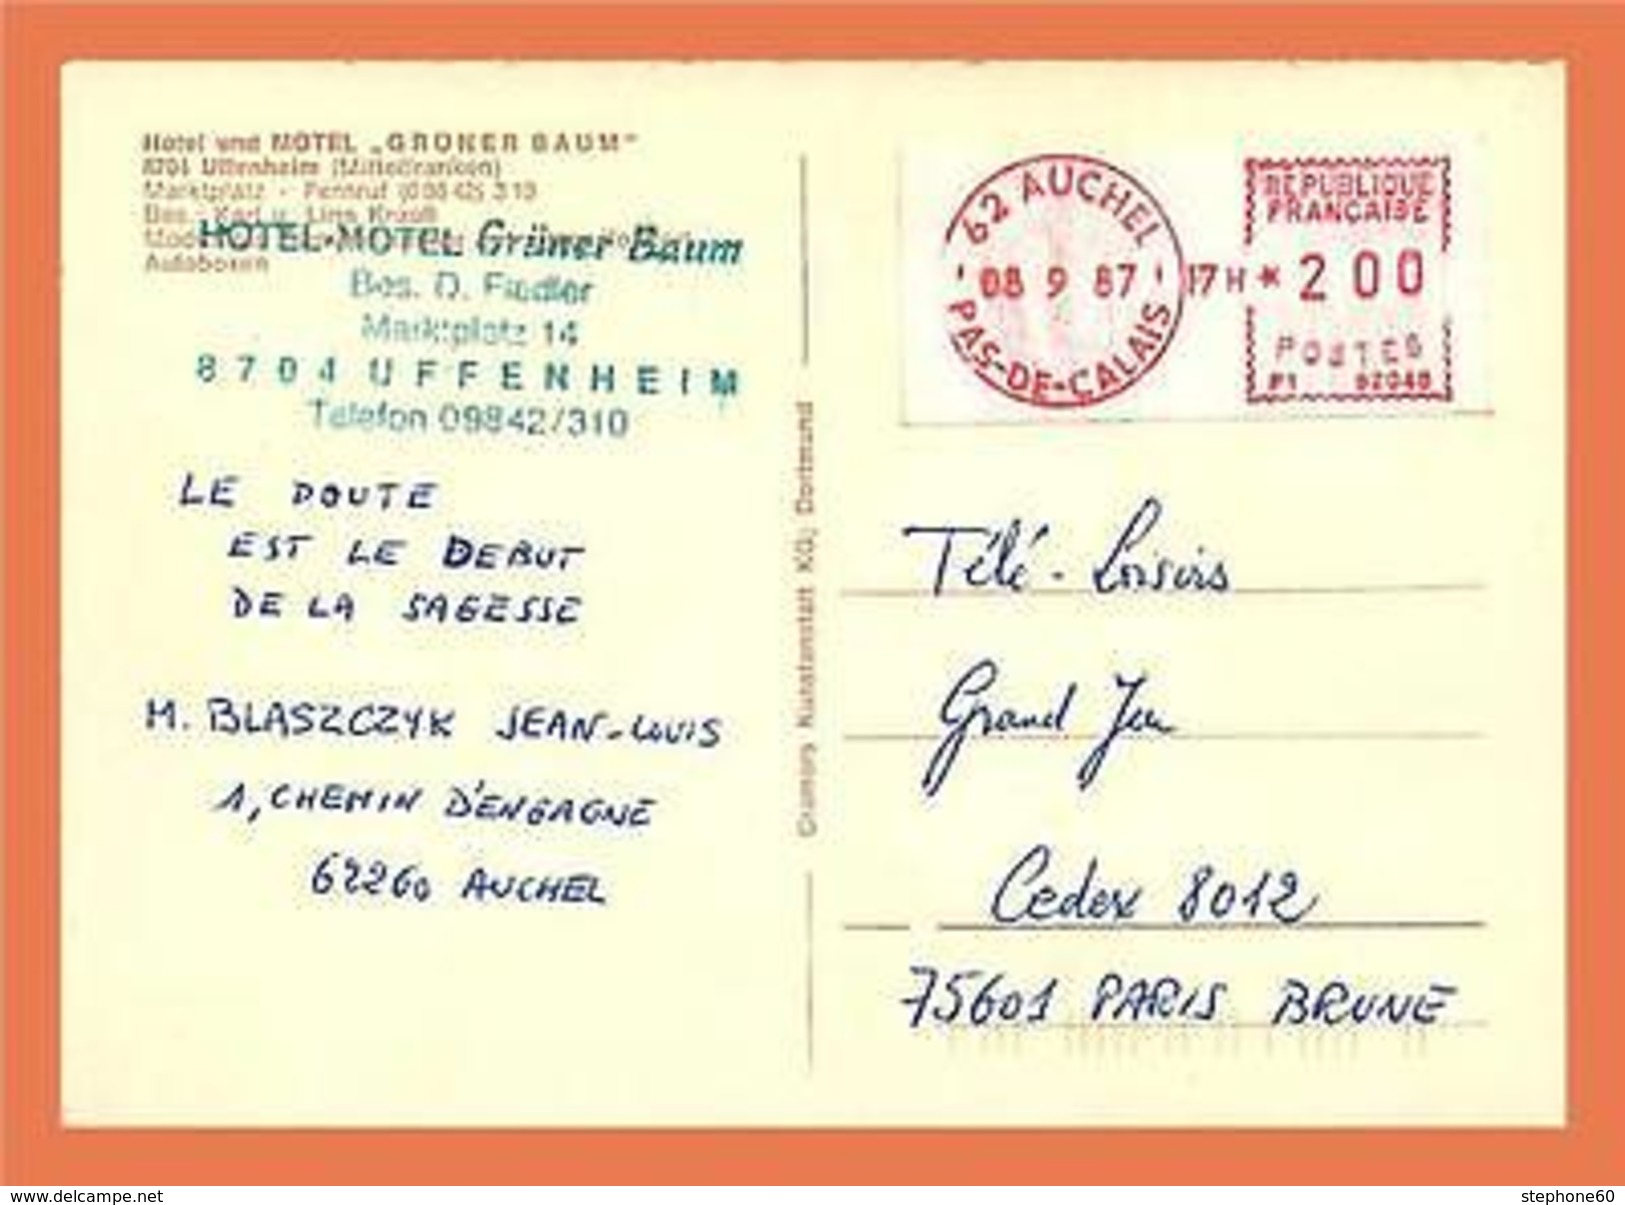 Hotel und MOTEL „GRÜNER BAUM"
8704 Uffenheim (Mittelfranken)
Marktplatz - Fernruf (09842) 310
Bes. Karl u. Lina Krauß
Autoboxen
HOTEL-MOTEL Grüner Baum
Bes. D. Fiedler
Marktplatz 14
8704 UFFENHEIM
Telefon 09842/310
LE DOUTE
EST LE DEBUT
DE LA SAGESSE
M. BLASZCZYK JEAN-LOUIS
1, CHEMIN D'ENGAGNE
62260 AUCHEL
Kunstanstalt KG, Dortmund
62 AUCHEL
08 9 87 17H
PAS-DE-CALAIS
REPUBLIQUE
FRANÇAISE
*200
POSTES
P1 62048
Télé-Loisirs
Grand Jeu
Cedex 8012
75601 PARIS BRUNE
www.delcampe.net
stephone60